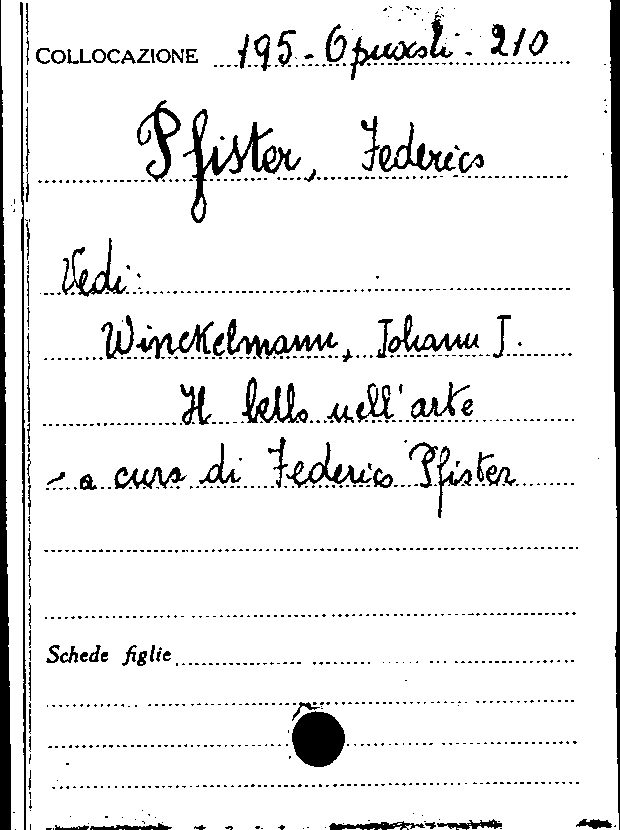 COLLOCAZIONE 195 - Opuscoli - 210
Pfister, Federico
Vedi:
Winckelmann, Johann J.
Il bello nell'arte
- a cura di Federico Pfister
Schede figlie